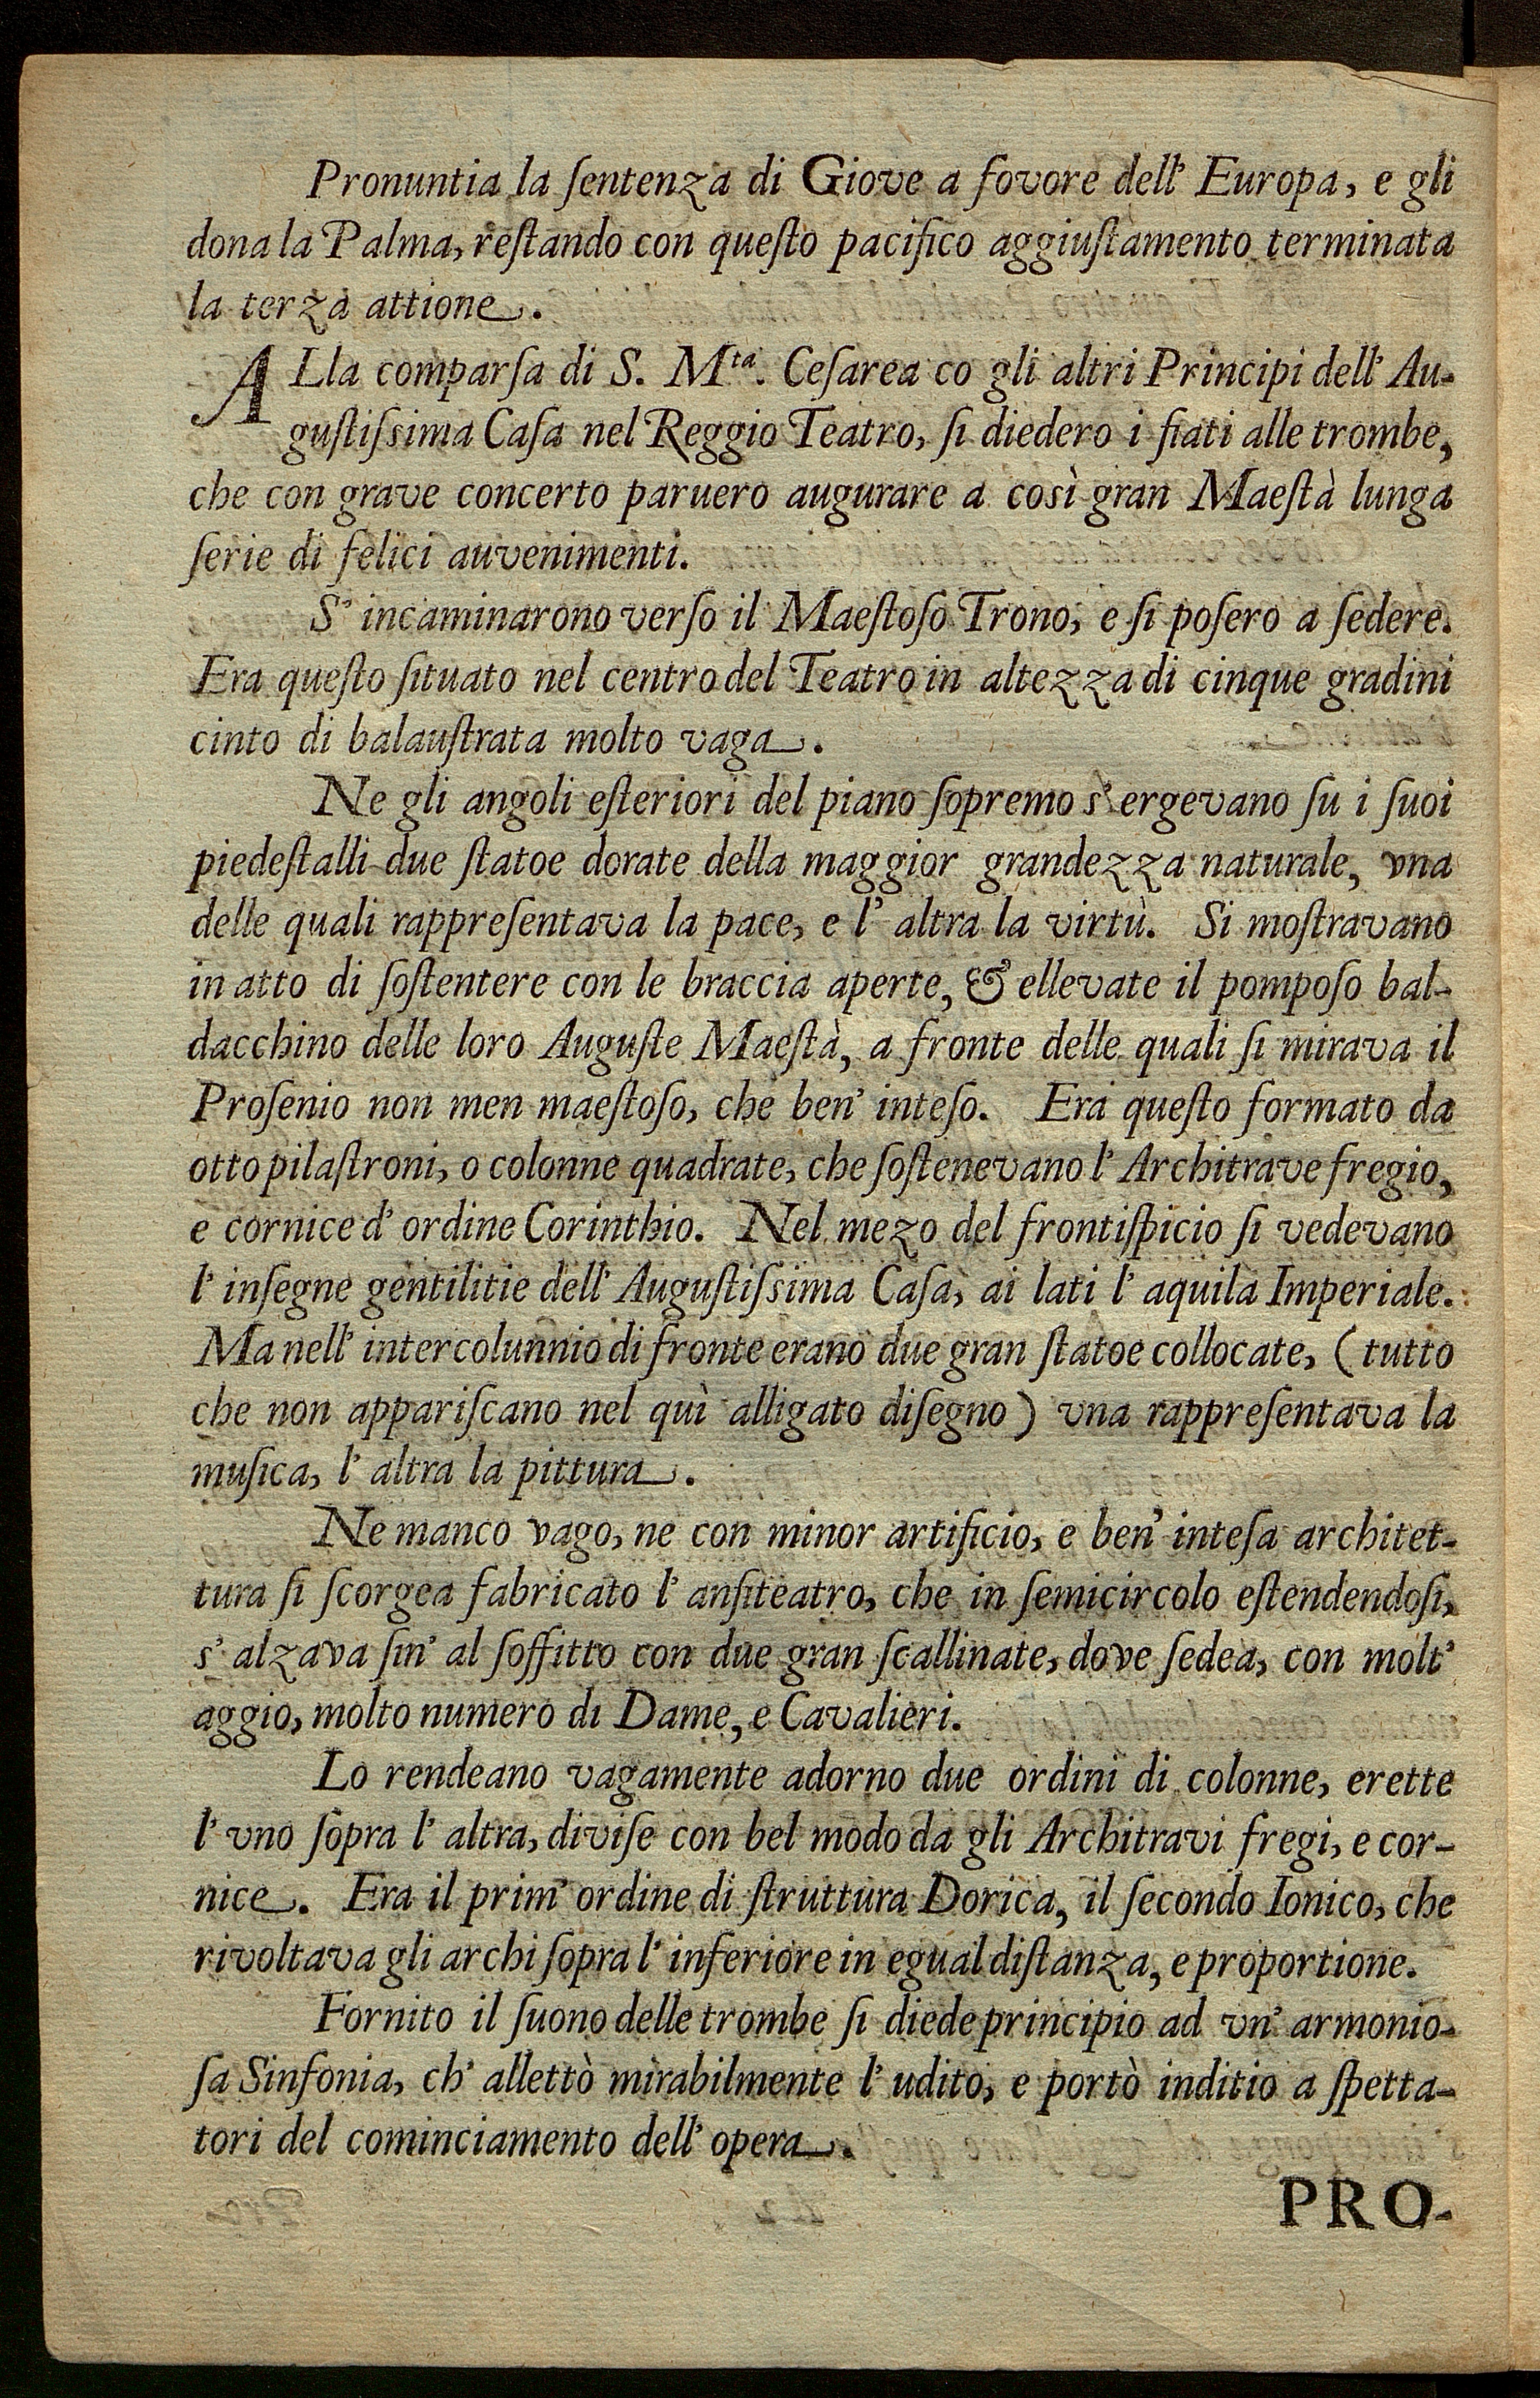 Pronuntia la ſentenza di Giove a fovore dell' Europa, e gli
dona la Palma, reſtando con queſto pacifico aggiuſtamento terminata
la terza attione.
ALla comparſa di S. Mta. Ceſarea co gli altri Principi dell' Au-
guſtiſsima Caſa nel Reggio Teatro, ſi diedero i fiati alle trombe,
che con grave concerto paruero augurare a così gran Maeſtà lunga
ſerie di felici auvenimenti.
S' incaminarono verſo il Maeſtoſo Trono, e ſi poſero a ſedere.
Era queſto ſituato nel centro del Teatro in altezza di cinque gradini
cinto di balauſtrata molto vaga.
Ne gli angoli eſteriori del piano ſopremo s' ergevano ſu i ſuoi
piedeſtalli due ſtatoe dorate della maggior grandezza naturale, vna
delle quali rappreſentava la pace, e l' altra la virtù. Si moſtravano
in atto di ſoſtentere con le braccia aperte, & ellevate il pompoſo bal-
dacchino delle loro Auguſte Maeſtà, a fronte delle quali ſi mirava il
Proſenio non men maeſtoſo, che ben' inteſo. Era queſto formato da
otto pilaſtroni, o colonne quadrate, che ſoſtenevano l' Architrave fregio,
e cornice d' ordine Corinthio. Nel mezo del frontiſpicio ſi vedevano
l' inſegne gentilitie dell' Auguſtiſsima Caſa, ai lati l' aquila Imperiale.
Ma nell' intercolunnio di fronte erano due gran ſtatoe collocate, (tutto
che non appariſcano nel quì alligato diſegno) vna rappreſentava la
muſica, l' altra la pittura.
Ne manco vago, ne con minor artificio, e ben' inteſa architet-
tura ſi ſcorgea fabricato l' anfiteatro, che in ſemicircolo eſtendendoſi,
s' alzava ſin' al ſoffitto con due gran ſcallinate, dove ſedea, con molt'
aggio, molto numero di Dame, e Cavalieri.
Lo rendeano vagamente adorno due ordini di colonne, erette
l' vno ſopra l' altra, diviſe con bel modo da gli Architravi fregi, e cor-
nice. Era il prim' ordine di ſtruttura Dorica, il ſecondo Ionico, che
rivoltava gli archi ſopra l' inferiore in egual diſtanza, e proportione.
Fornito il ſuono delle trombe ſi diede principio ad vn' armonio-
ſa Sinfonia, ch' allettò mirabilmente l' udito, e portò inditio a ſpetta-
tori del cominciamento dell' opera.
PRO-